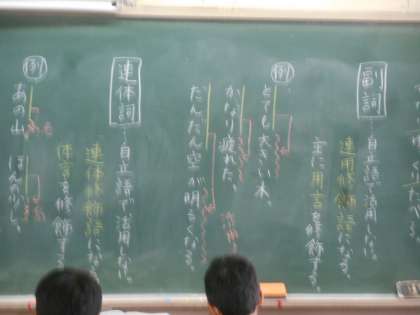 副詞…自立語で活用しない。
連用修飾語になる。
主に用言を修飾する。
例
とても大きい木。
かなり疲れた。
だんだん空が明るくなる。
連体詞…自立語で活用しない。
連体修飾語になる。
体言を修飾する。
例
あの山